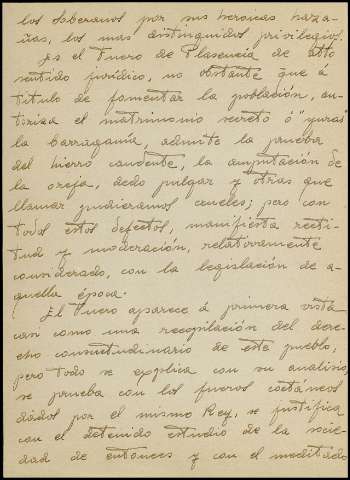 los Soberanos por sus heroicas haza-
ñas, los mas distinguidos privilegios.
Es el Fuero de Plasencia de alto
sentido jurídico, no obstante que á
título de fomentar la población, au-
toriza el matrimonio secreto ó "yuras"
la barraganía, admite la prueba
del hierro candente, la amputación de
la oreja, dedo pulgar y otras que
llamar pudieramos crueles; pero con
todos estos defectos, manifiesta recti-
tud y moderación, relativamente
considerado, con la legislación de a-
quella época.
El Fuero aparece á primera vista
casi como una recopilación del dere-
cho consuetudinario de este pueblo;
pero todo se explica con su analisis,
se prueba con los fueros coetáneos
dados por el mismo Rey, se justifica
con el detenido estudio de la socie-
dad de entonces y con el meditado